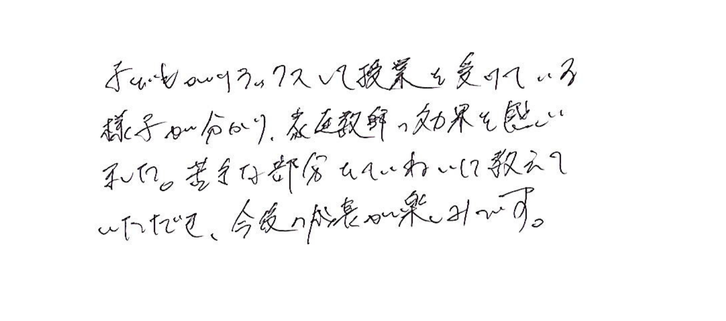 子どもがリラックスして授業を受けている
様子が分かり、家庭教師の効果を感じ
ました。苦手な部分をていねいに教えて
いただき、今後の成長が楽しみです。